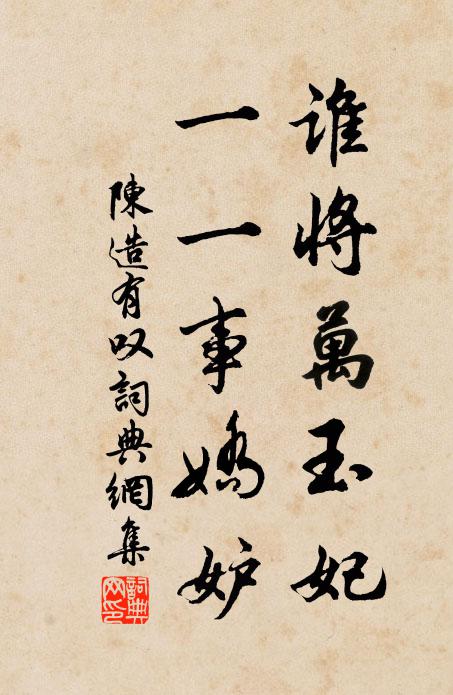 誰將萬玉妃
一一事嬌妒
陳造有叹詞典網集
詞典網印